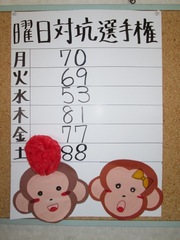 曜日対抗選手権
月 70
火 69
水 53
木 81
金 77
土 88